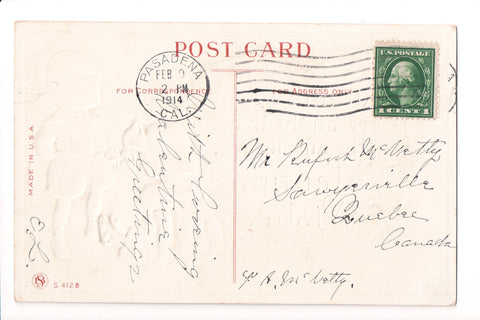 POST CARD
PASADENA
FEB 9
2 PM
1914
CAL.
U.S. POSTAGE
1 CENT 1
FOR CORRESPONDENCE
FOR ADDRESS ONLY
With loving
Valentine
Greetings
Mr Rufus McVetty
Sawyerville
Quebec
Canada
A. McVetty.
MADE IN U.S.A
S. 412 B